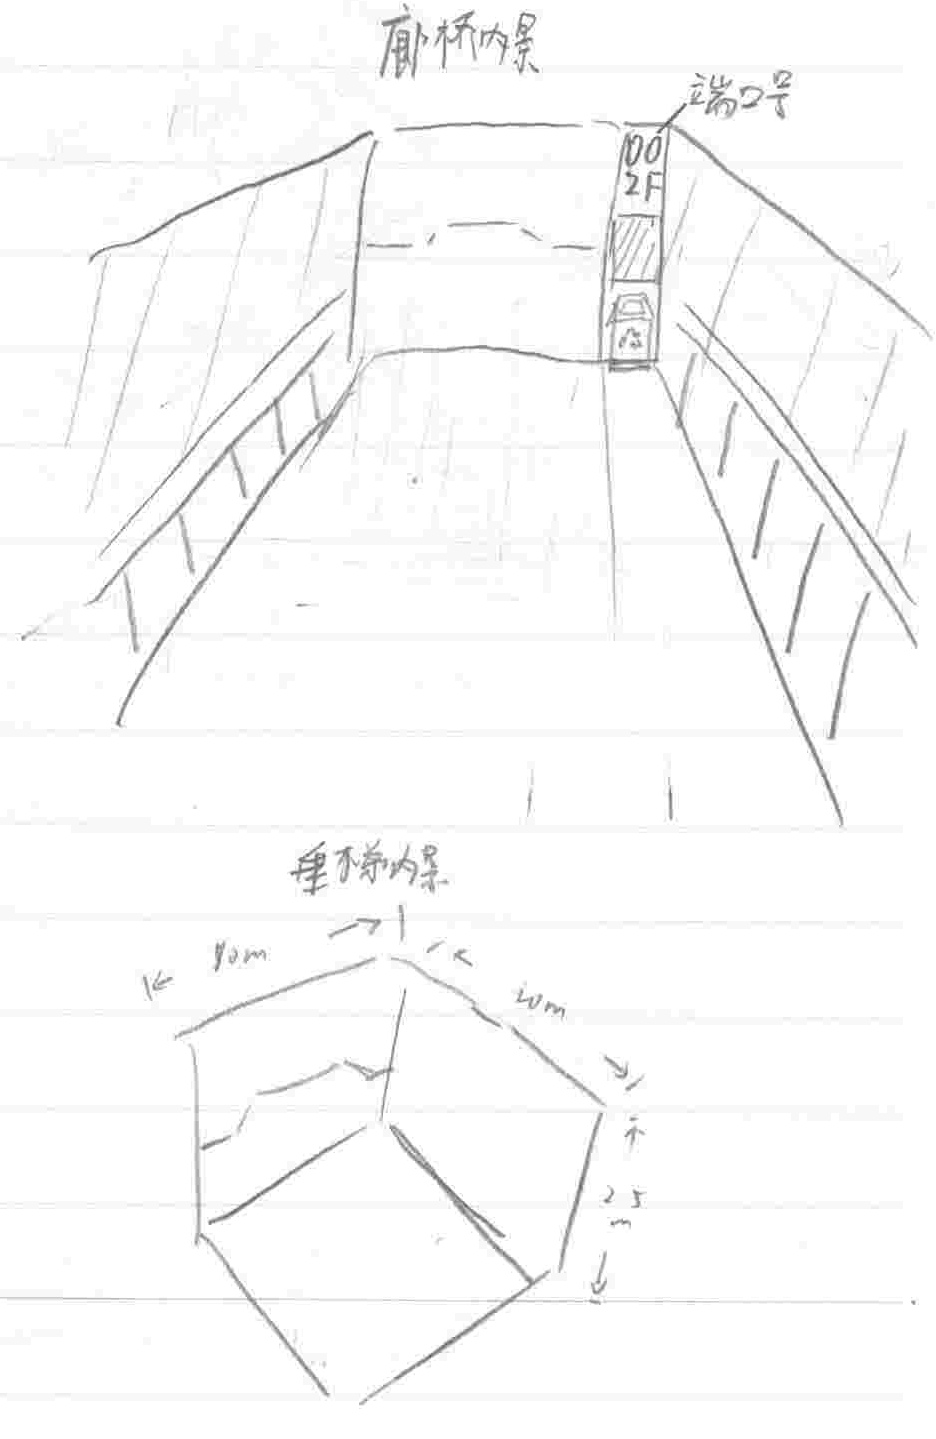 廊桥内景
端口号
00
2F
垂梯内景
10m
20m
25
m